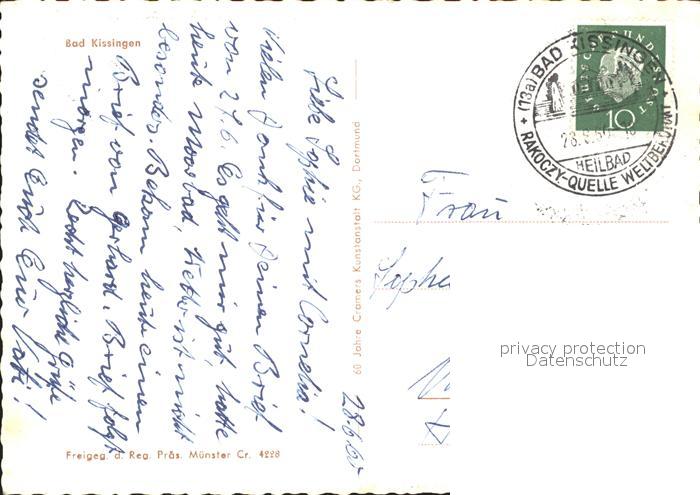 Bad Kissingen
Liebe Sophie mit Cornelia!
Vielen Dank für Deinen Brief
von 27.6. Es geht mir gut, hatte
heute Moorbad, Wetter ist nicht
besonders. Bekam heute einen
Brief von Gerhard. Brief folgt
morgen. Recht herzliche Grüße
sendet Euch Euer Vati!
28.6.60
60 Jahre Cramers Kunstanstalt KG., Dortmund
Freigeg. d. Reg. Präs. Münster Cr. 4228
DEUTSCHE BUNDESPOST
10
(13a) BAD KISSINGEN
HEILBAD
RAKOCZY-QUELLE WELTBERÜHMT
Frau
Sophie
privacy protection
Datenschutz